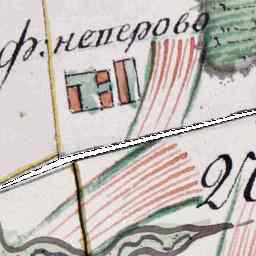 ф: неперово